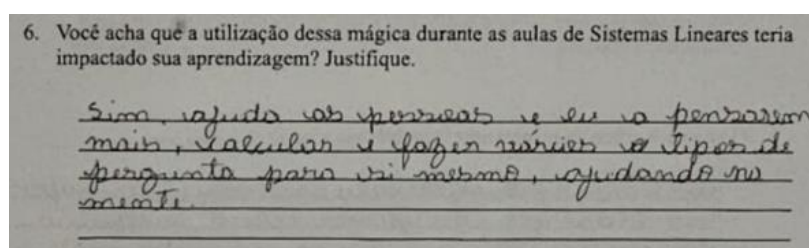 6. Você acha que a utilização dessa mágica durante as aulas de Sistemas Lineares teria
impactado sua aprendizagem? Justifique.
Sim, ajuda as pessoas e eu a pensarem
mais, calcular e fazer vários tipos de
pergunta para si mesmo, ajudando na
mente.